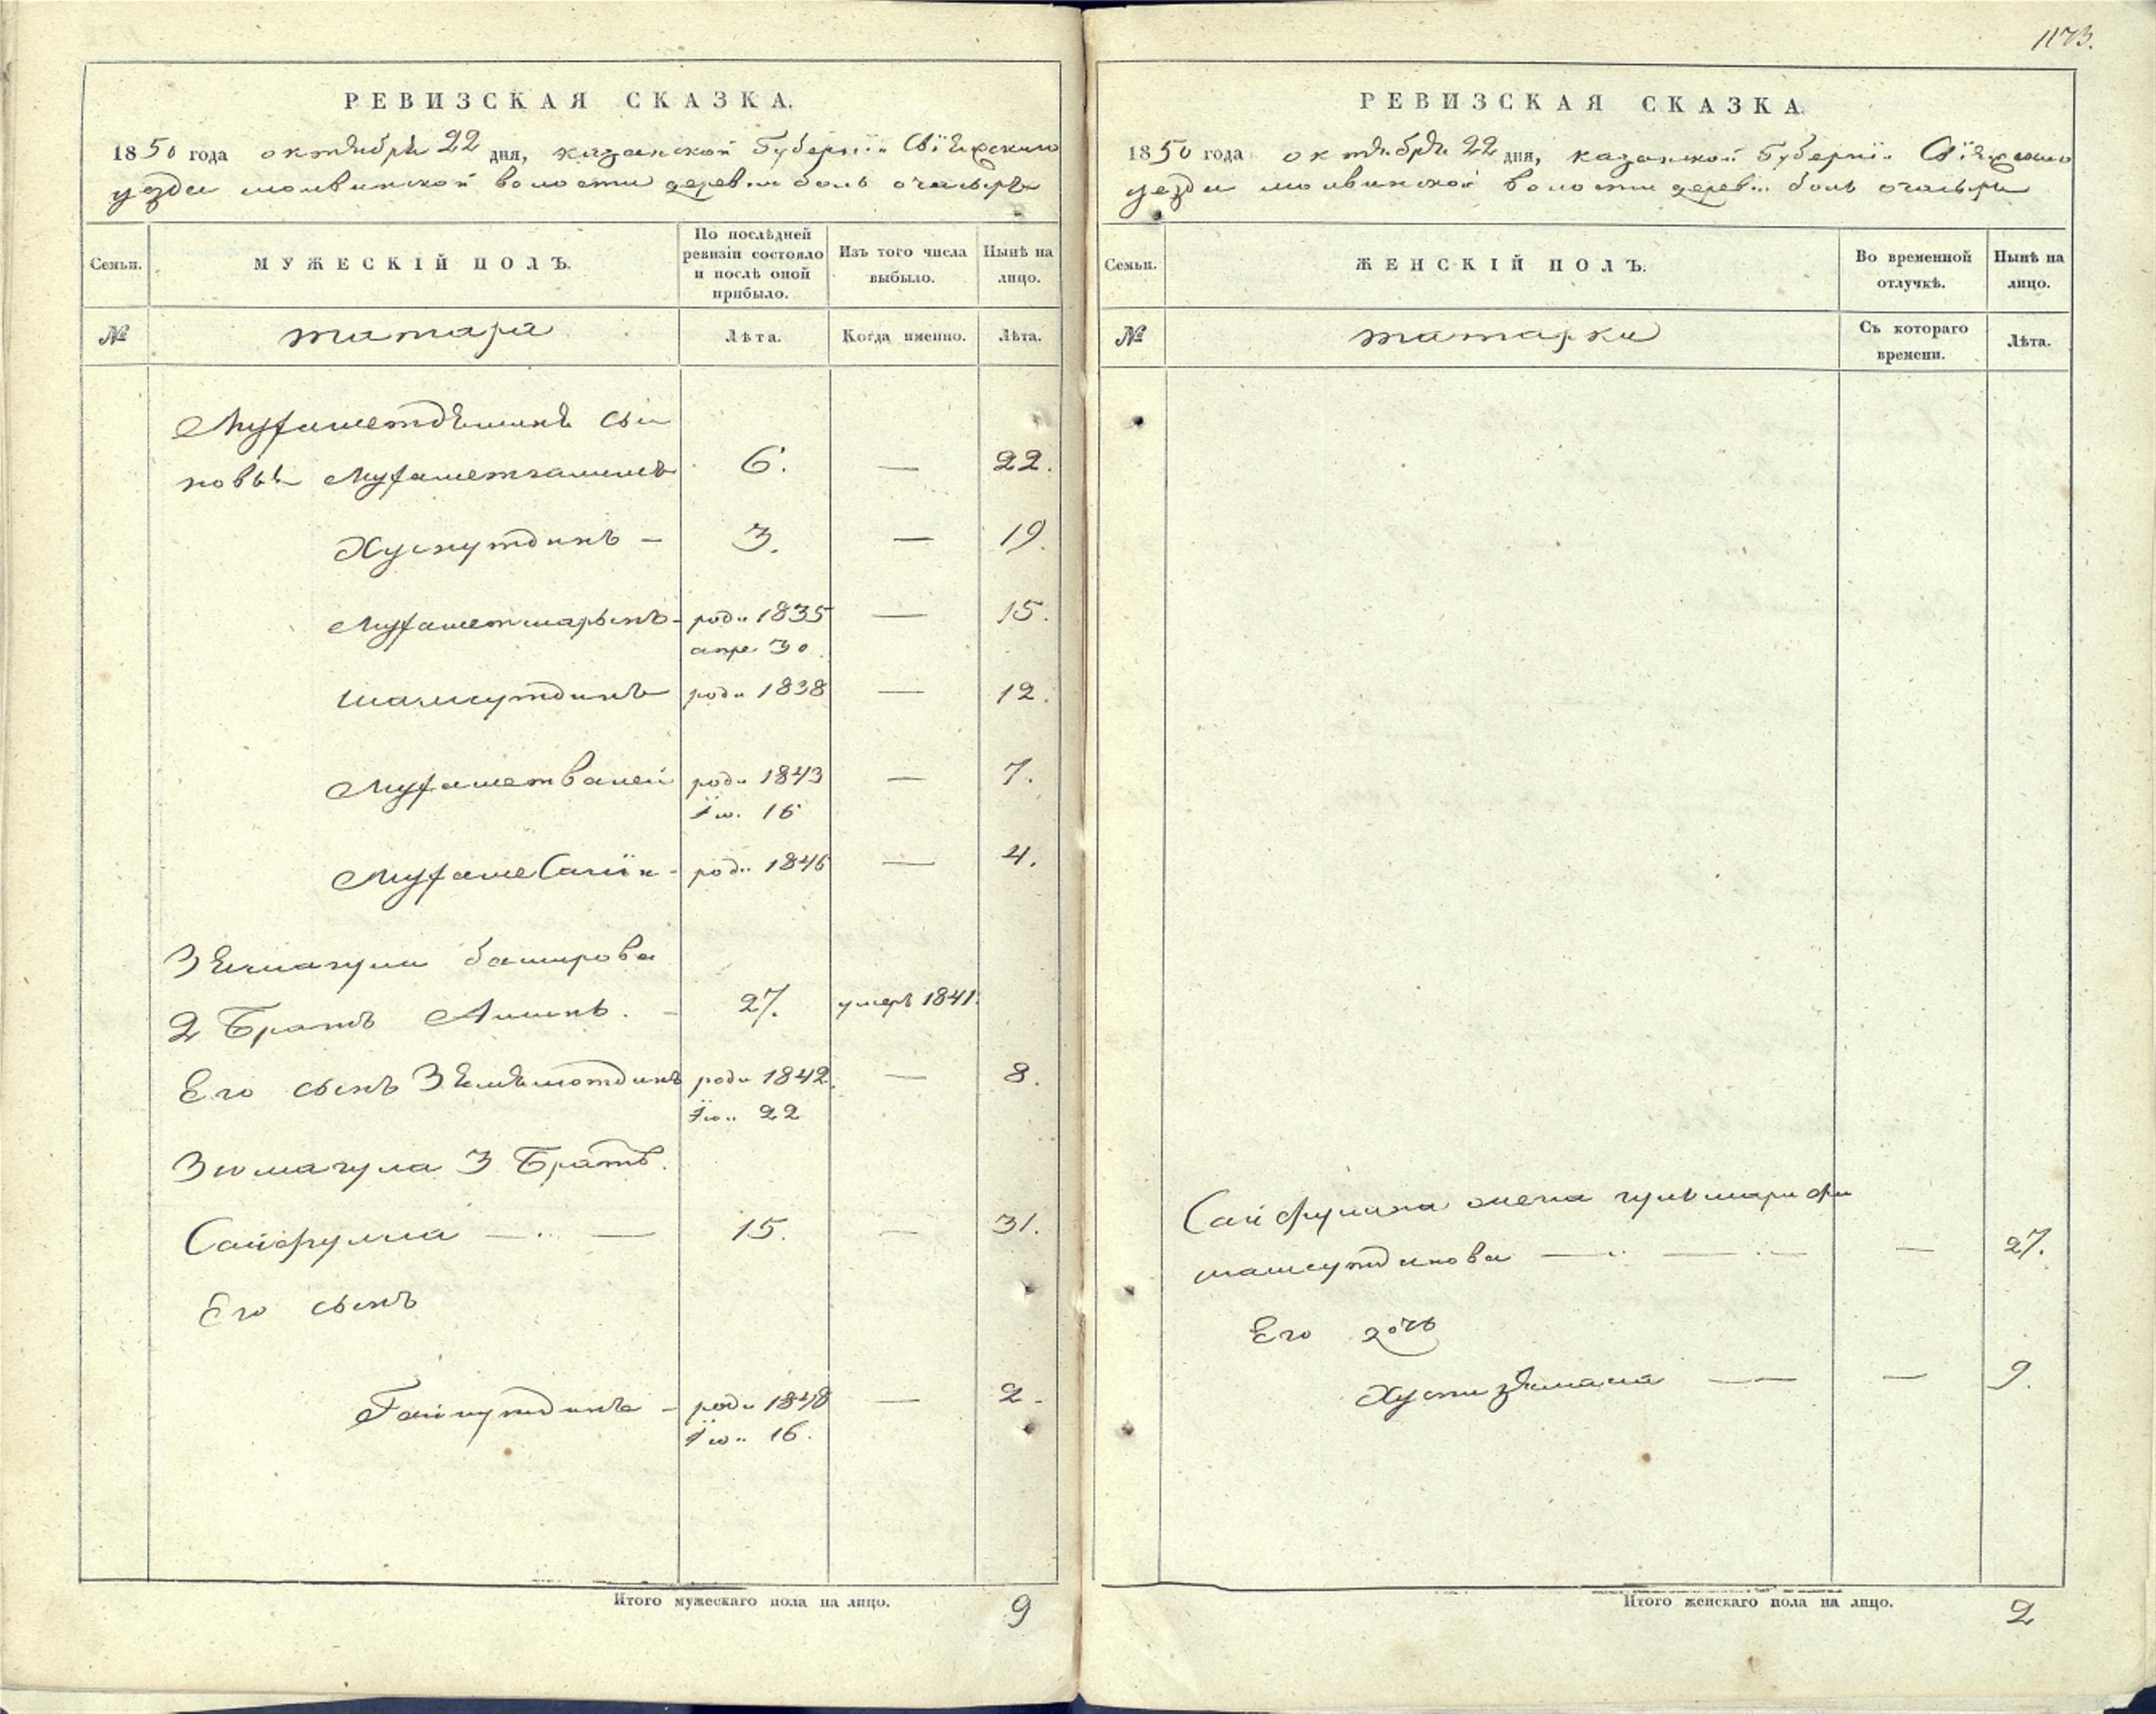 1173.
РЕВИЗСКАЯ СКАЗКА.
1850 года октября 22 дня, казанской Губернiи Свiяжскаго
уезда молвинской волости деревни боль очасыръ
Семьи. МУЖЕСКІЙ ПОЛЪ. По послѣдней ревизіи состояло и послѣ оной прибыло. Изъ того числа выбыло. Нынѣ на лицо.
№ татара Лѣта. Когда именно. Лѣта.
Мухаметдѣминѣ сы
новьѣ Мухаметгалимъ 6. — 22.
Хуснутдинъ — 3. — 19.
Мухаметшарыпъ - роди 1835 — 15.
апре 30
шамсутдинъ роди 1838 — 12.
Мухаметвалей роди 1843 — 7.
Їю. 16
Мухаме - роди 1846 — 4.
баширова
2 Братъ - 27. умеръ 1841.
Его сынъ роди 1842. — 8.
Їю.. 22
Зюмагула 3 Братъ.
Сайфулла — . — 15. — 31.
Его сынъ
Гайнутдинъ - роди 1848 — 2.
Їю.. 16.
Итого мужескаго пола на лицо. 9
РЕВИЗСКАЯ СКАЗКА.
1850 года октября 22 дня, казанской Губернiи Свiяжскаго
уезда молвинской волости деревни боль очасыръ
Семьи. ЖЕНСКІЙ ПОЛЪ. Во временной отлучкѣ. Нынѣ на лицо.
№ татарки Съ котораго времени. Лѣта.
Сайфуллина жена
шамсутдинова — — — 27.
Его дочь
— — 9.
Итого женскаго пола на лицо. 2